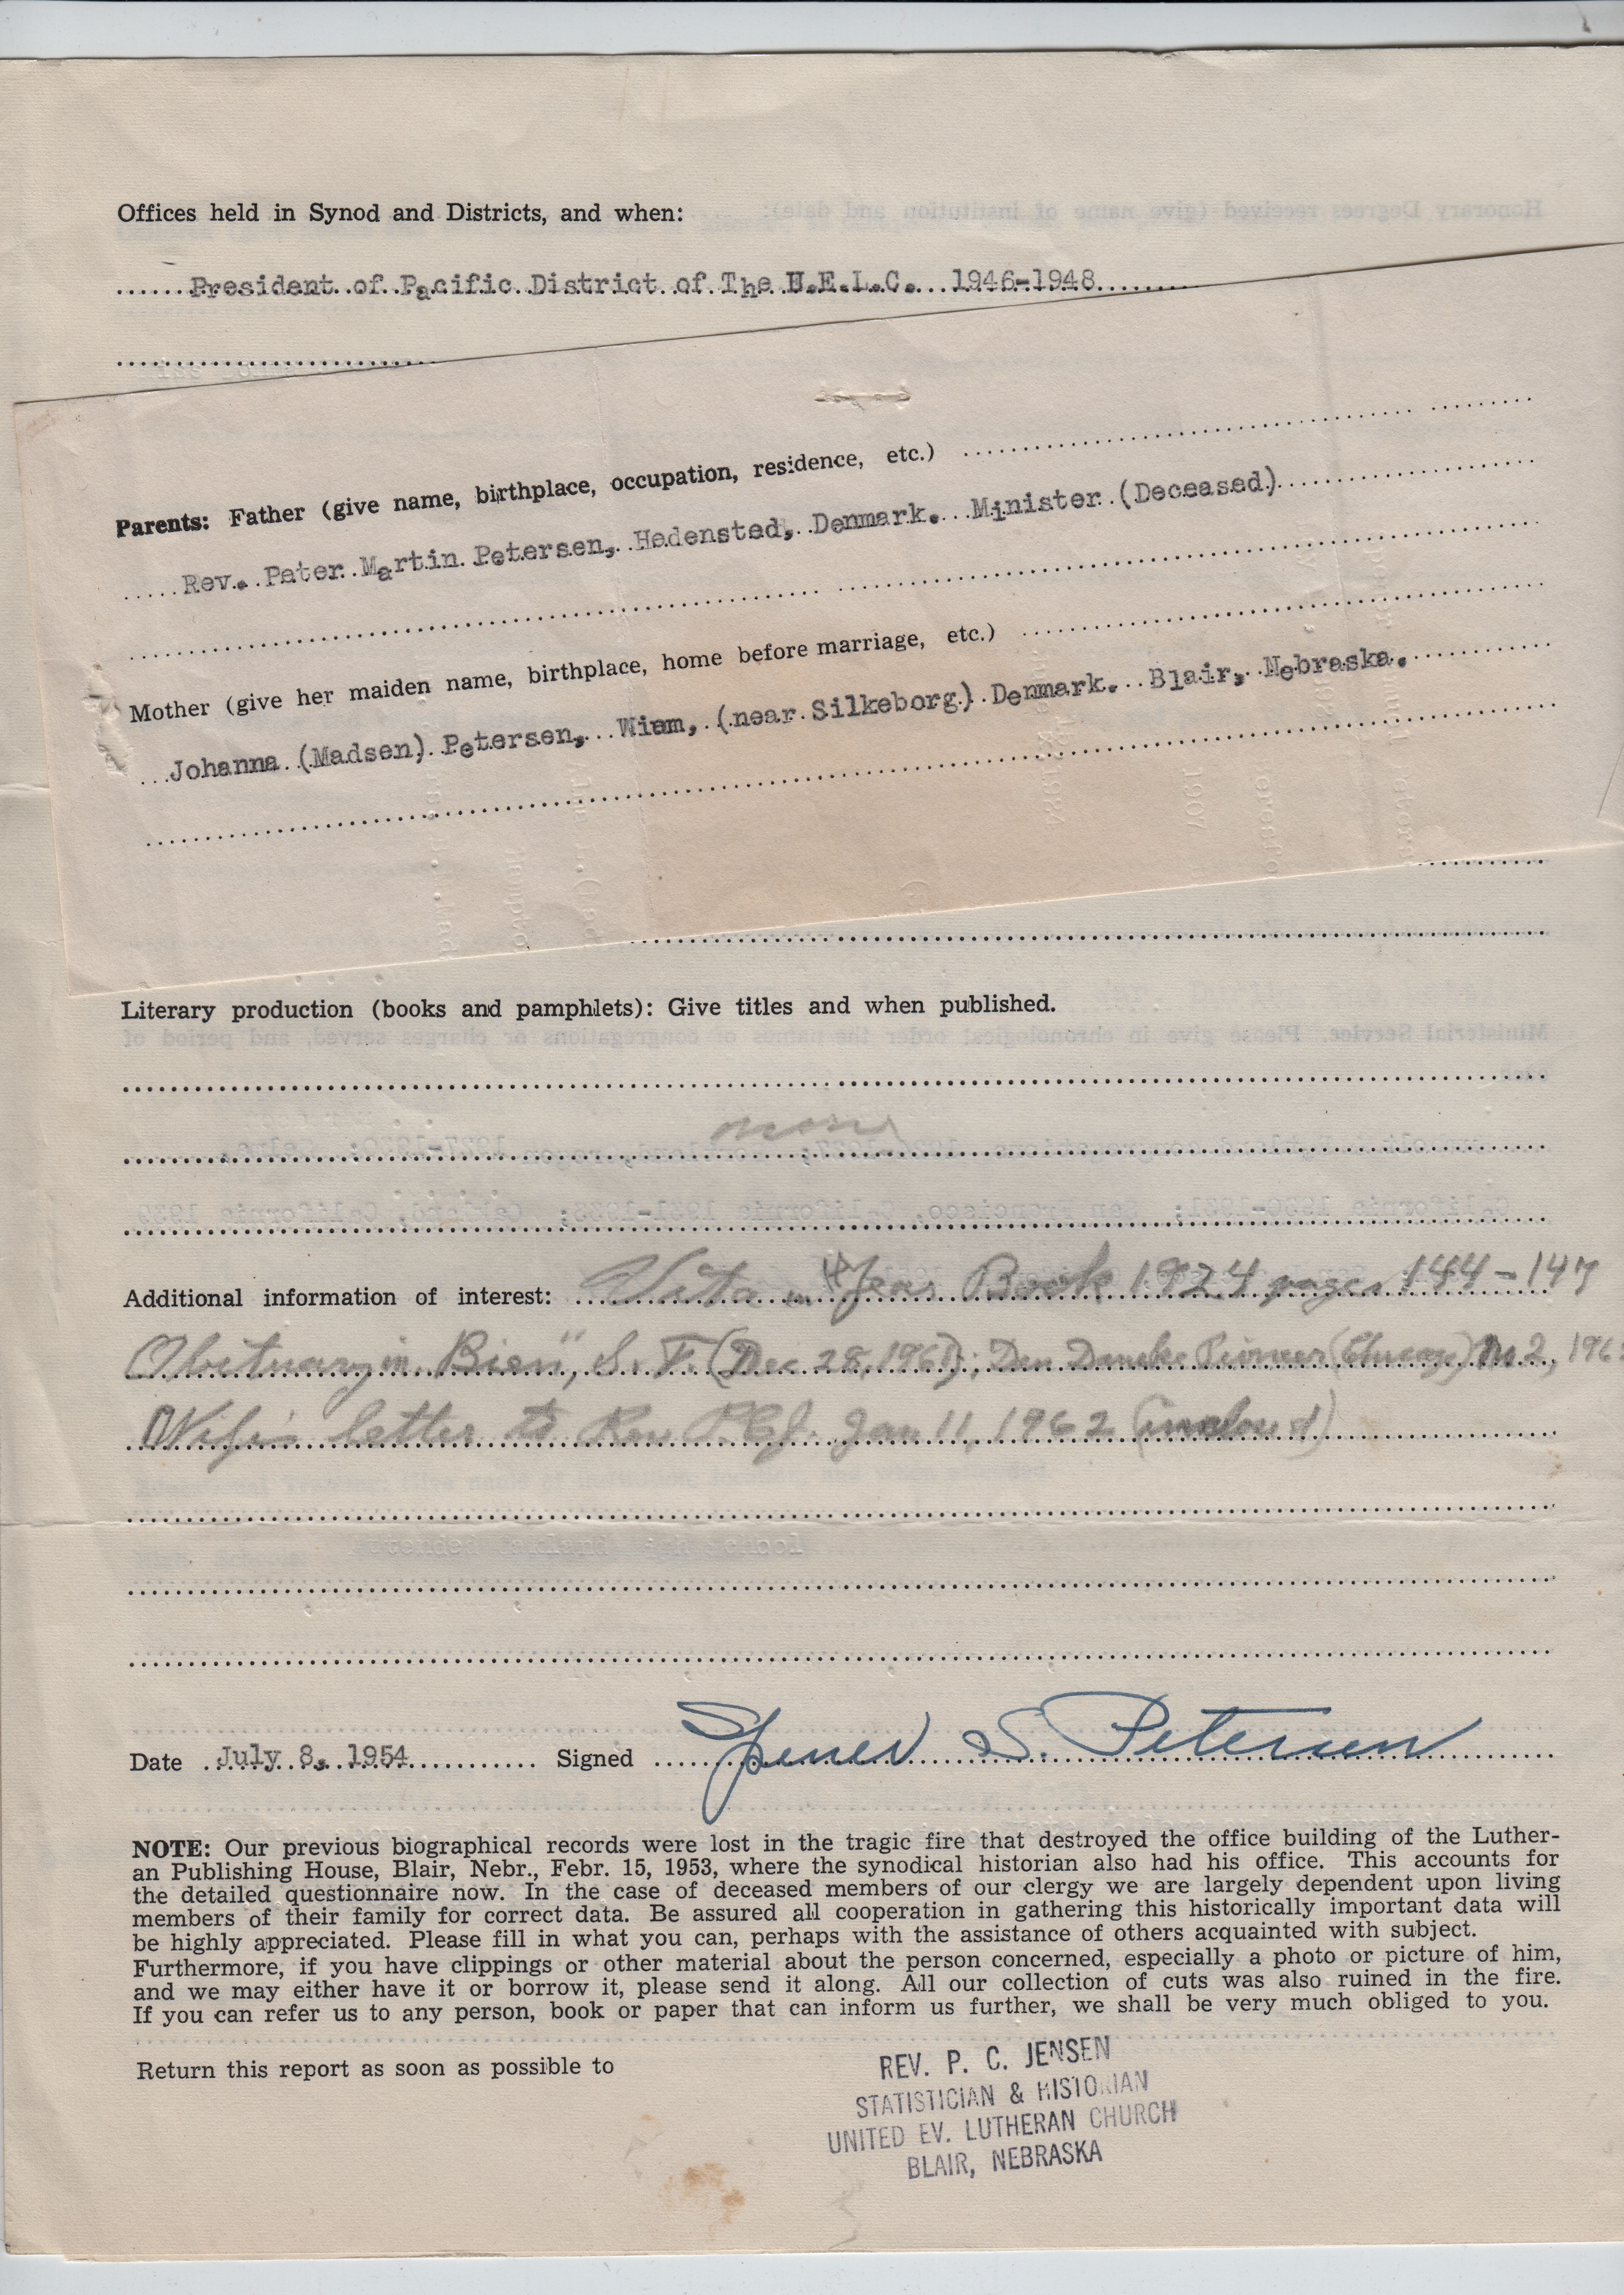 Offices held in Synod and Districts, and when:
President of Pacific District of The U.E.L.C. 1946-1948
Parents: Father (give name, birthplace, occupation, residence, etc.)
Rev. Peter Martin Petersen, Hedensted, Denmark. Minister (Deceased)
Mother (give her maiden name, birthplace, home before marriage, etc.)
Johanna (Madsen) Petersen, Wium, (near Silkeborg) Denmark. Blair, Nebraska.
Literary production (books and pamphlets): Give titles and when published.
none
Additional information of interest: Vita in Year Book 1924 pages 144-147
Obituary in "Bien", S. F. (Dec 28, 1961); Den Danske Pioneer (Chicago) No 2, 196
Wife's letter to Rev P.C.J. Jan 11, 1962 (inclosed)
Date July 8, 1954 Signed S. Petersen
NOTE: Our previous biographical records were lost in the tragic fire that destroyed the office building of the Luther-
an Publishing House, Blair, Nebr., Febr. 15, 1953, where the synodical historian also had his office. This accounts for
the detailed questionnaire now. In the case of deceased members of our clergy we are largely dependent upon living
members of their family for correct data. Be assured all cooperation in gathering this historically important data will
be highly appreciated. Please fill in what you can, perhaps with the assistance of others acquainted with subject.
Furthermore, if you have clippings or other material about the person concerned, especially a photo or picture of him,
and we may either have it or borrow it, please send it along. All our collection of cuts was also ruined in the fire.
If you can refer us to any person, book or paper that can inform us further, we shall be very much obliged to you.
Return this report as soon as possible to
REV. P. C. JENSEN
STATISTICIAN & HISTORIAN
UNITED EV. LUTHERAN CHURCH
BLAIR, NEBRASKA